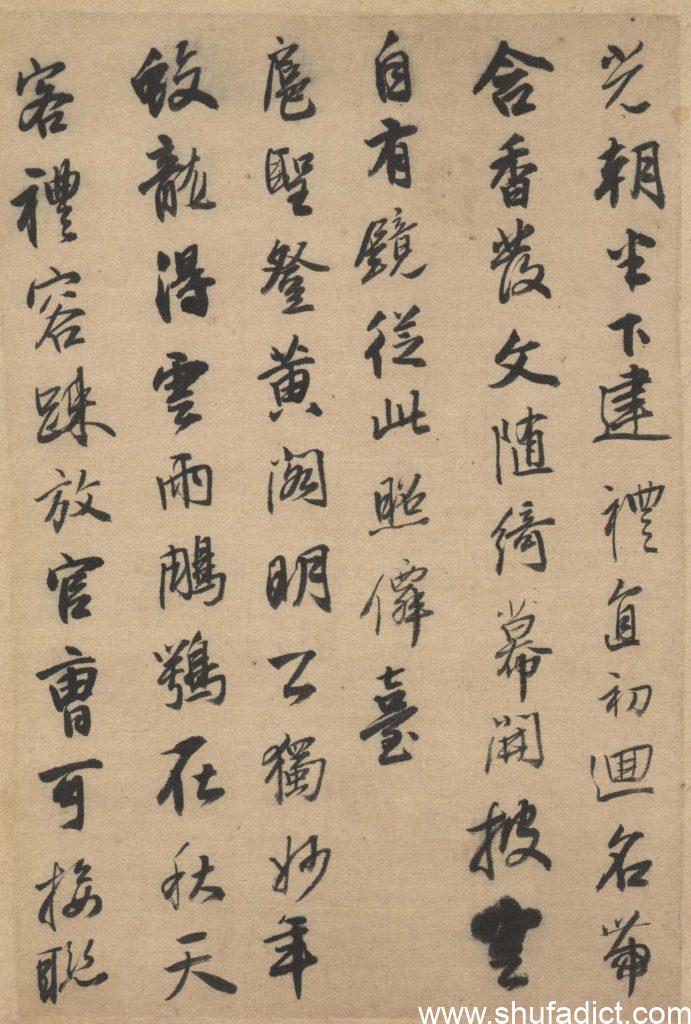 光朝半下建禮直初迴名帶
含香發文隨綺幕開披雲
自有鏡從此照僚臺
扈聖登黃閣明公獨妙年
蛟龍得雲雨鵰鶚在秋天
客禮容踈放官曹可接聯
www.shufadict.com